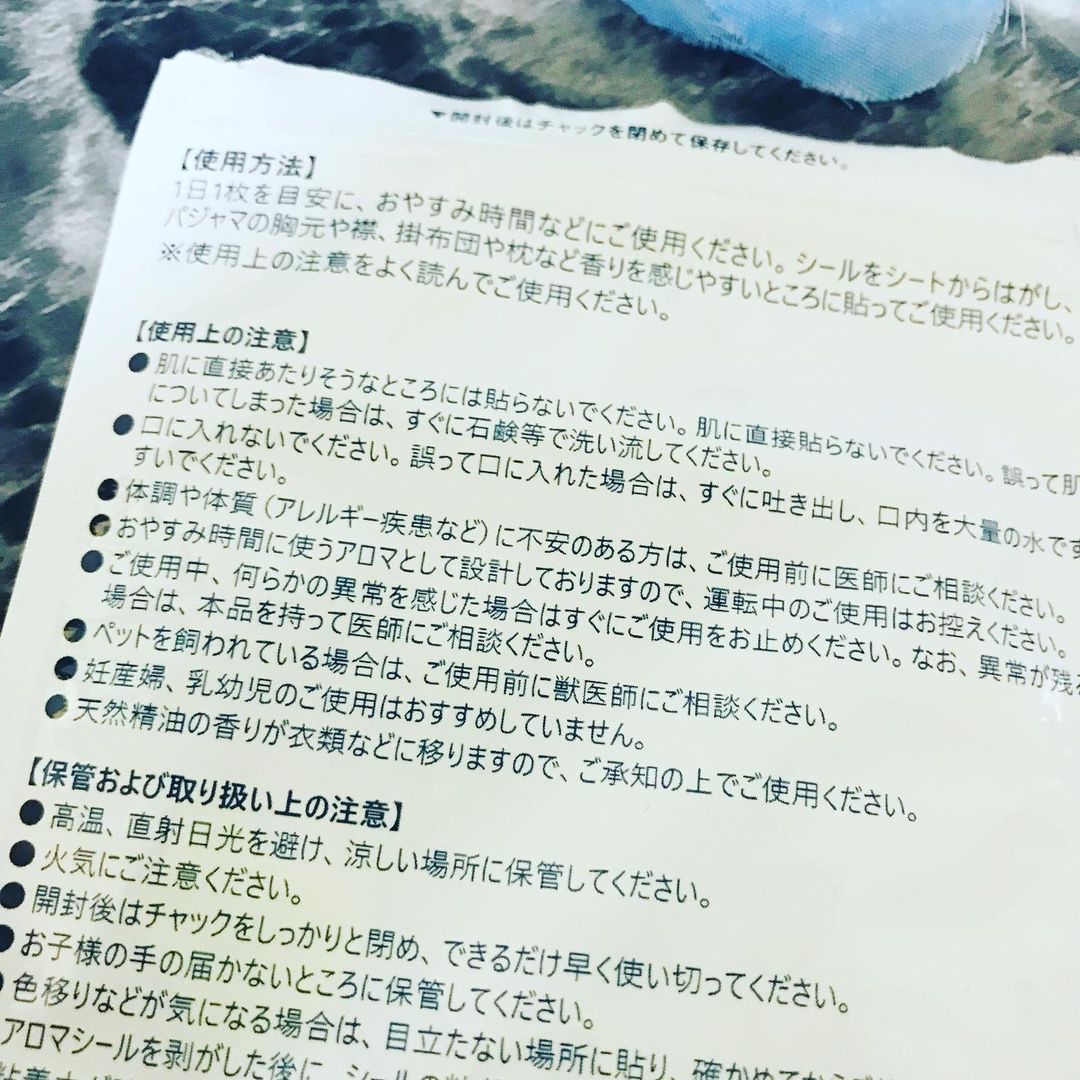 ▼開封後はチャックを閉めて保存してください。
【使用方法】
1日1枚を目安に、おやすみ時間などにご使用ください。シールをシートからはがし、
パジャマの胸元や襟、掛布団や枕など香りを感じやすいところに貼ってご使用ください。
※使用上の注意をよく読んでご使用ください。
【使用上の注意】
●肌に直接あたりそうなところには貼らないでください。肌に直接貼らないでください。誤って肌
についてしまった場合は、すぐに石鹸等で洗い流してください。
●口に入れないでください。誤って口に入れた場合は、すぐに吐き出し、口内を大量の水です
すいでください。
●体調や体質（アレルギー疾患など）に不安のある方は、ご使用前に医師にご相談ください。
●おやすみ時間に使うアロマとして設計しておりますので、運転中のご使用はお控えください。
●ご使用中、何らかの異常を感じた場合はすぐにご使用をお止めください。なお、異常が残る
場合は、本品を持って医師にご相談ください。
●ペットを飼われている場合は、ご使用前に獣医師にご相談ください。
●妊産婦、乳幼児のご使用はおすすめしていません。
●天然精油の香りが衣類などに移りますので、ご承知の上でご使用ください。
【保管および取り扱い上の注意】
●高温、直射日光を避け、涼しい場所に保管してください。
●火気にご注意ください。
●開封後はチャックをしっかりと閉め、できるだけ早く使い切ってください。
●お子様の手の届かないところに保管してください。
●色移りなどが気になる場合は、目立たない場所に貼り、確かめてから
アロマシールを剥がした後に、シールの